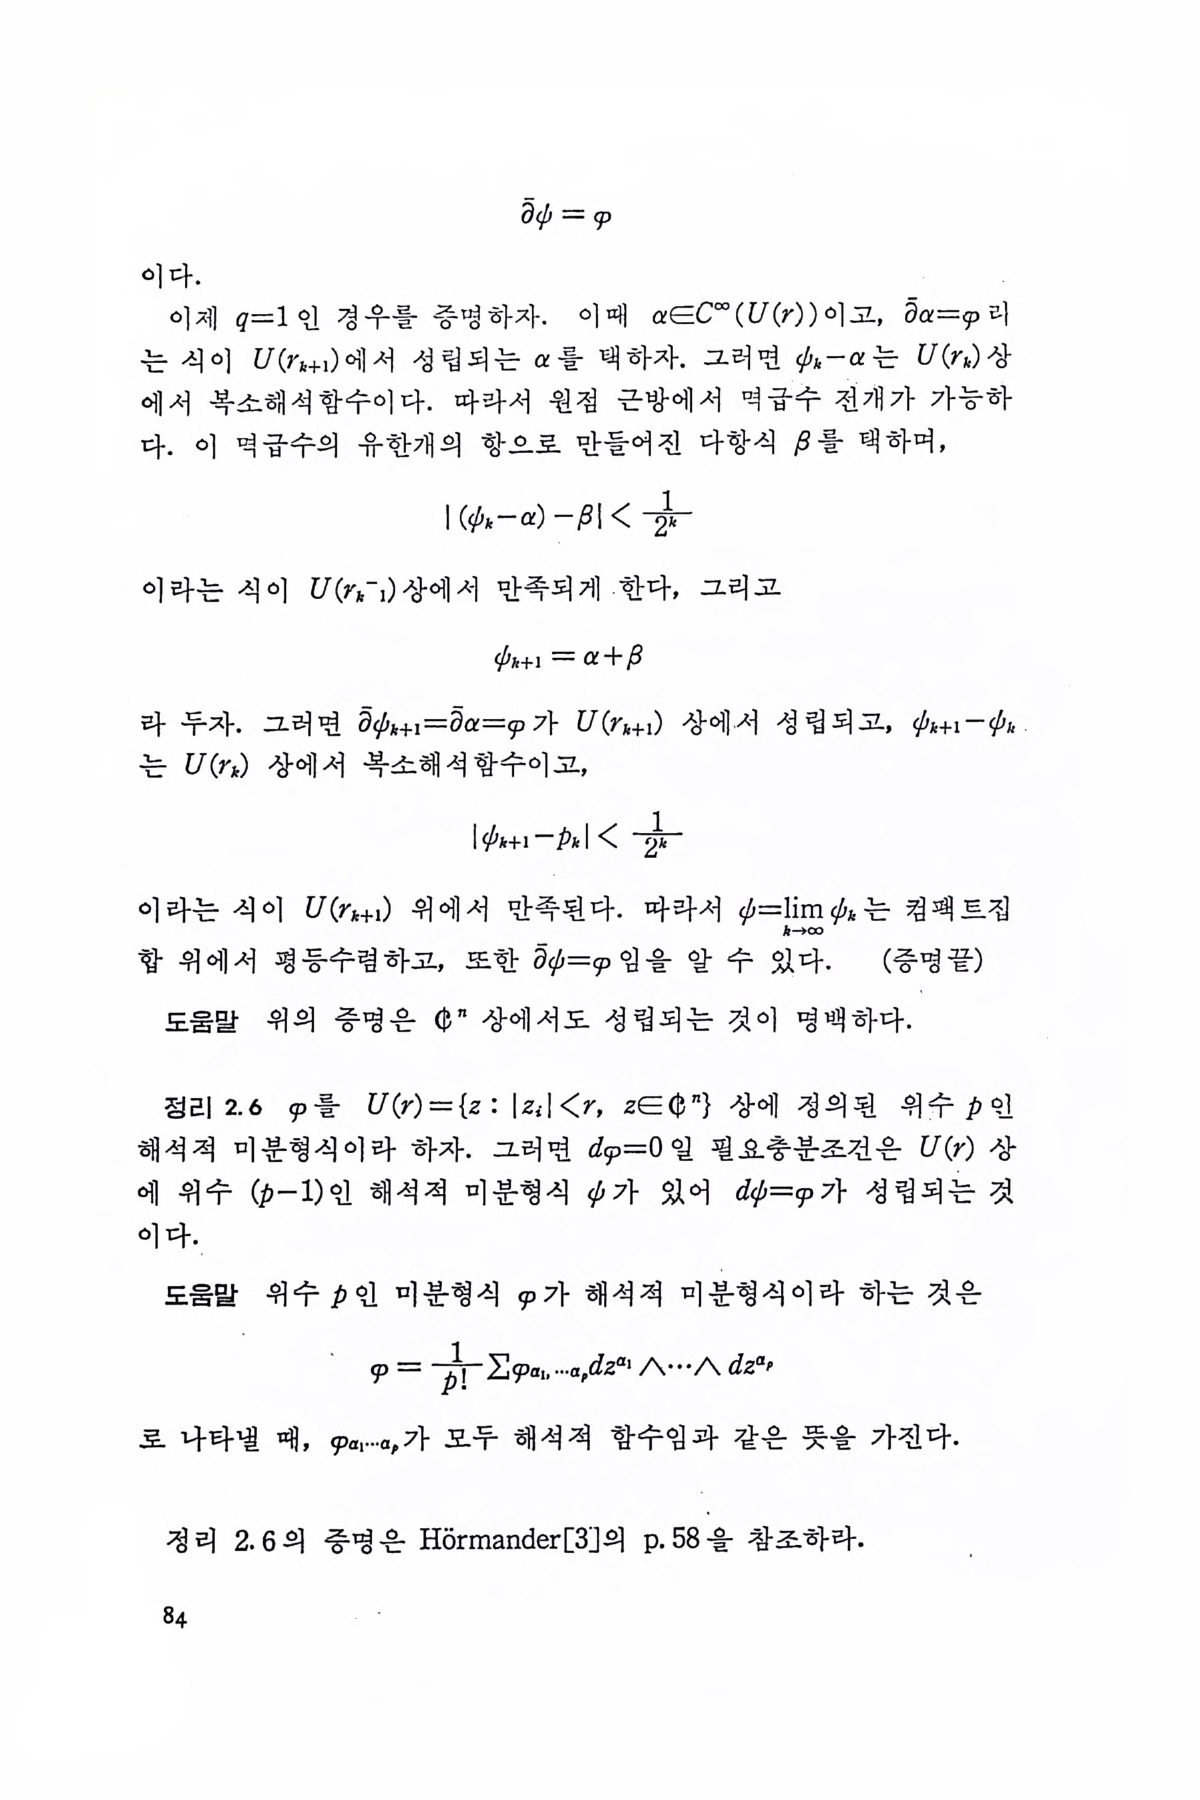 ∂̄ψ = φ
이다.
이제 q=1인 경우를 증명하자. 이때 α∈C^∞(U(r))이고, ∂̄α=φ라
는 식이 U(r_{k+1})에서 성립되는 α를 택하자. 그러면 ψ_k−α는 U(r_k)상
에서 복소해석함수이다. 따라서 원점 근방에서 멱급수 전개가 가능하
다. 이 멱급수의 유한개의 항으로 만들어진 다항식 β를 택하며,
|(ψ_k−α)−β| < 1/2^k
이라는 식이 U(r_k^-_1)상에서 만족되게 한다, 그리고
ψ_{k+1} = α+β
라 두자. 그러면 ∂̄ψ_{k+1}=∂̄α=φ가 U(r_{k+1}) 상에서 성립되고, ψ_{k+1}−ψ_k
는 U(r_k) 상에서 복소해석함수이고,
|ψ_{k+1}−p_k| < 1/2^k
이라는 식이 U(r_{k+1}) 위에서 만족된다. 따라서 ψ=lim_{k→∞} ψ_k는 컴팩트집
합 위에서 평등수렴하고, 또한 ∂̄ψ=φ임을 알 수 있다. (증명끝)
도움말 위의 증명은 ℂ^n 상에서도 성립되는 것이 명백하다.
정리 2.6 φ를 U(r)={z : |z_i|<r, z∈ℂ^n} 상에 정의된 위수 p인
해석적 미분형식이라 하자. 그러면 dφ=0일 필요충분조건은 U(r) 상
에 위수 (p−1)인 해석적 미분형식 ψ가 있어 dψ=φ가 성립되는 것
이다.
도움말 위수 p인 미분형식 φ가 해석적 미분형식이라 하는 것은
φ = 1/p! Σφ_{α_1,…α_p}dz^{α_1}∧⋯∧dz^{α_p}
로 나타낼 때, φ_{α_1…α_p}가 모두 해석적 함수임과 같은 뜻을 가진다.
정리 2.6의 증명은 Hörmander[3]의 p. 58을 참조하라.
84